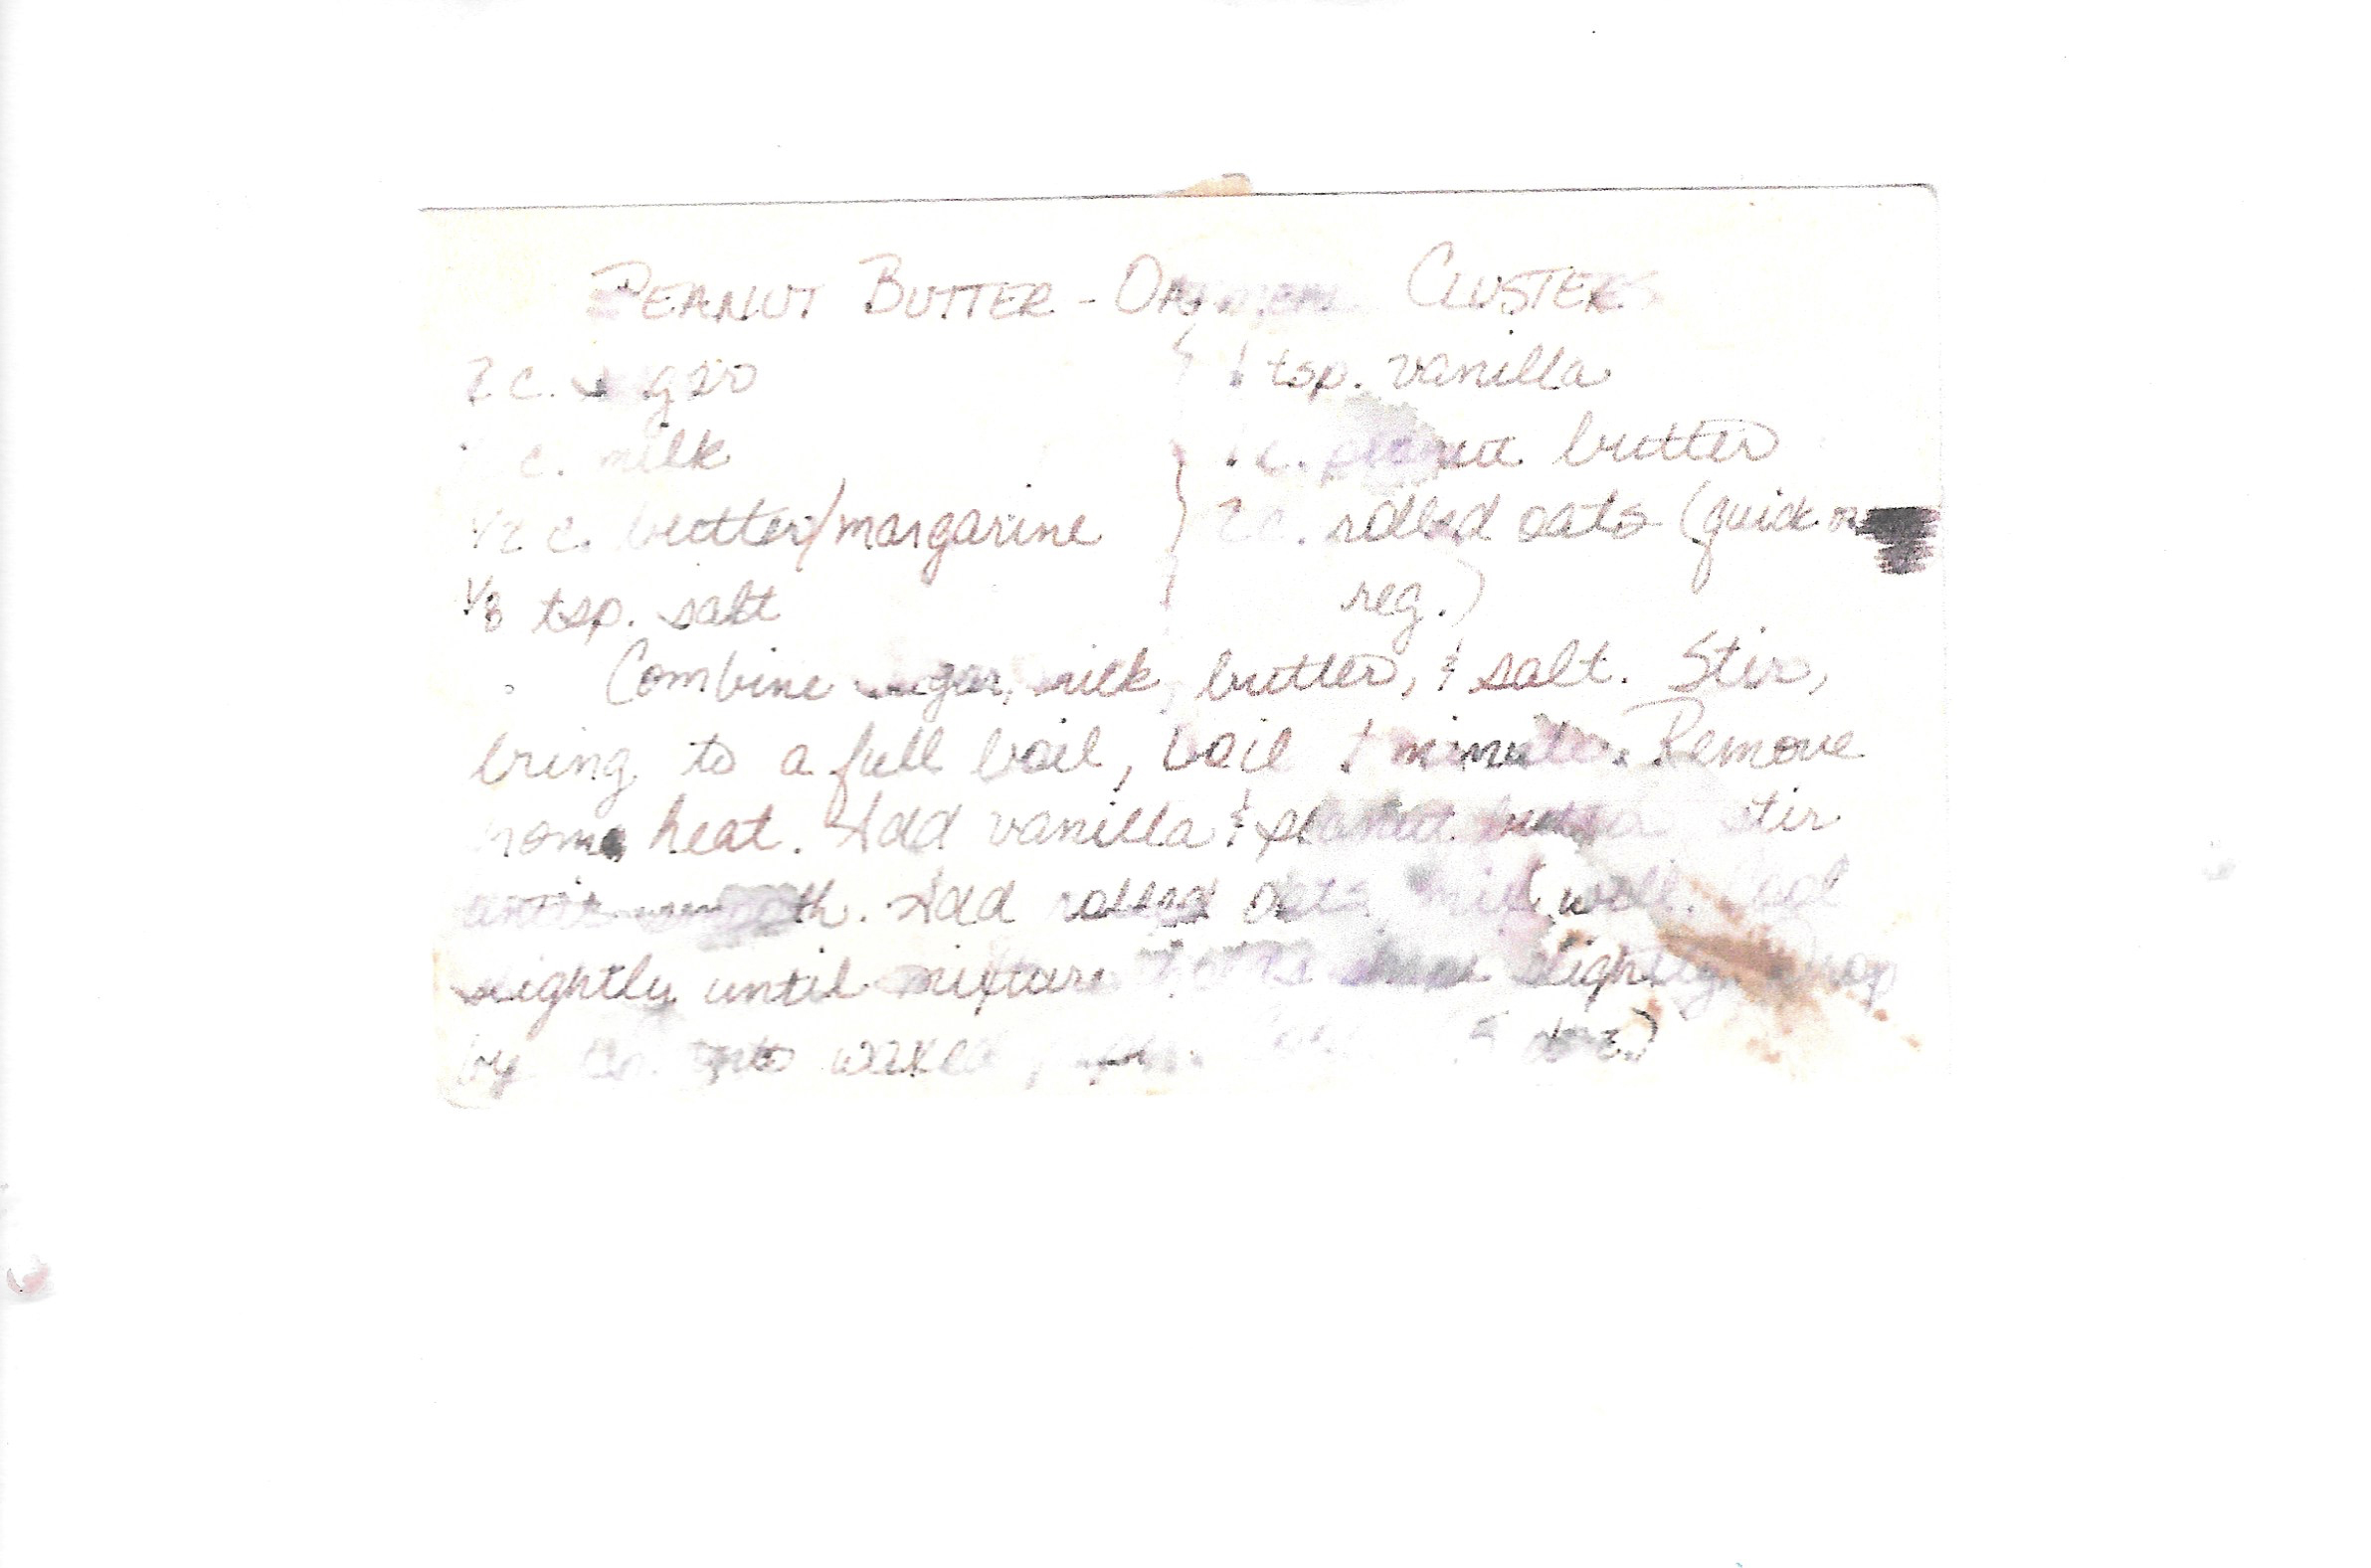 PEANUT BUTTER - OATMEAL CLUSTERS
2 c. sugar
c. milk
1/2 c. butter/margarine
1/8 tsp. salt
1 tsp. vanilla
c. peanut butter
2 c. rolled oats (quick or
reg.)
Combine sugar, milk, butter, & salt. Stir,
bring to a full boil, boil 1 minute. Remove
from heat. Add vanilla & peanut butter stir
until smooth. Add rolled oats mix well. Cool
slightly until mixture slightly. Drop
by onto waxed doz.)